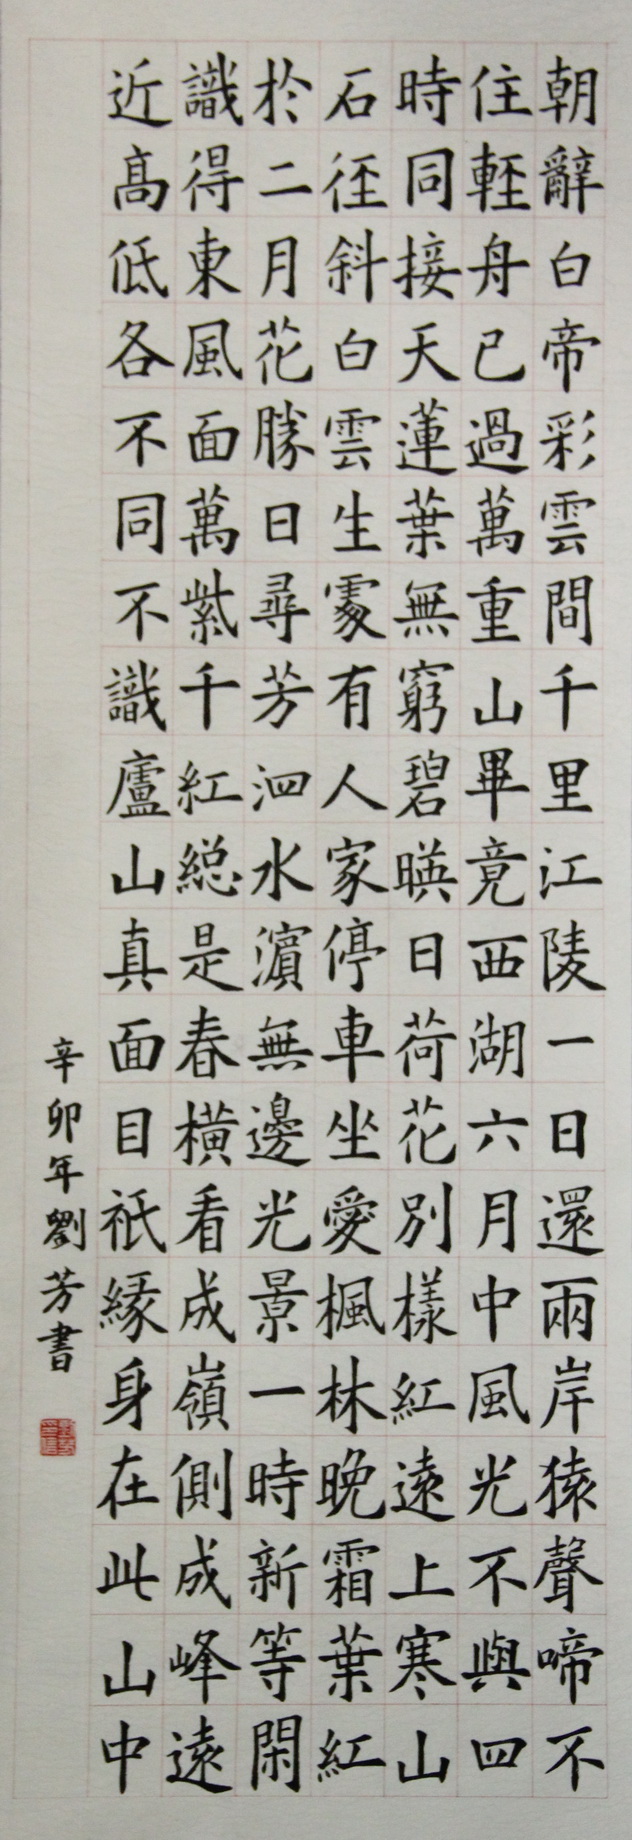 朝辭白帝彩雲間千里江陵一日還兩岸猿聲啼不
住輕舟已過萬重山畢竟西湖六月中風光不與四
時同接天蓮葉無窮碧映日荷花別樣紅遠上寒山
石徑斜白雲生處有人家停車坐愛楓林晚霜葉紅
於二月花勝日尋芳泗水濱無邊光景一時新等閑
識得東風面萬紫千紅總是春橫看成嶺側成峰遠
近高低各不同不識廬山真面目祇緣身在此山中
辛卯年劉芳書